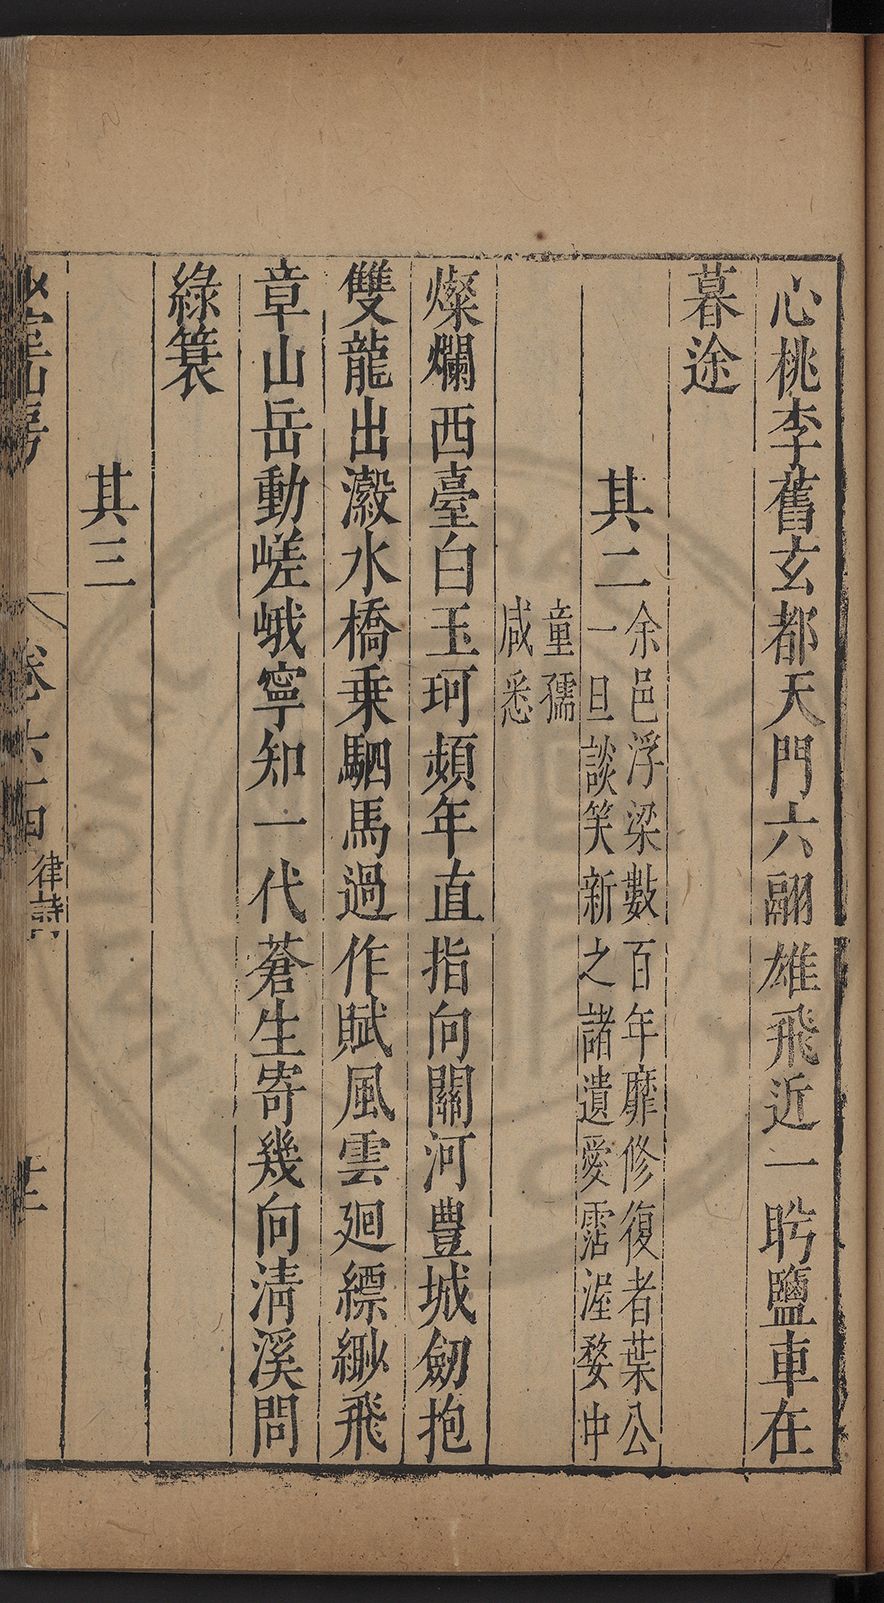 心桃李舊玄都天門六翮雄飛近一眄鹽車在
暮途
其二
余邑浮梁數百年靡修復者葉公
一旦談笑新之諸遺愛霑渥婺中
童孺
咸悉
燦爛西臺白玉珂頻年直指向關河豊城劒抱
雙龍出瀫水橋乗駟馬過作賦風雲廻縹緲飛
章山岳動嵯峨寧知一代蒼生寄幾向清溪問
綠簑
其三
律詩